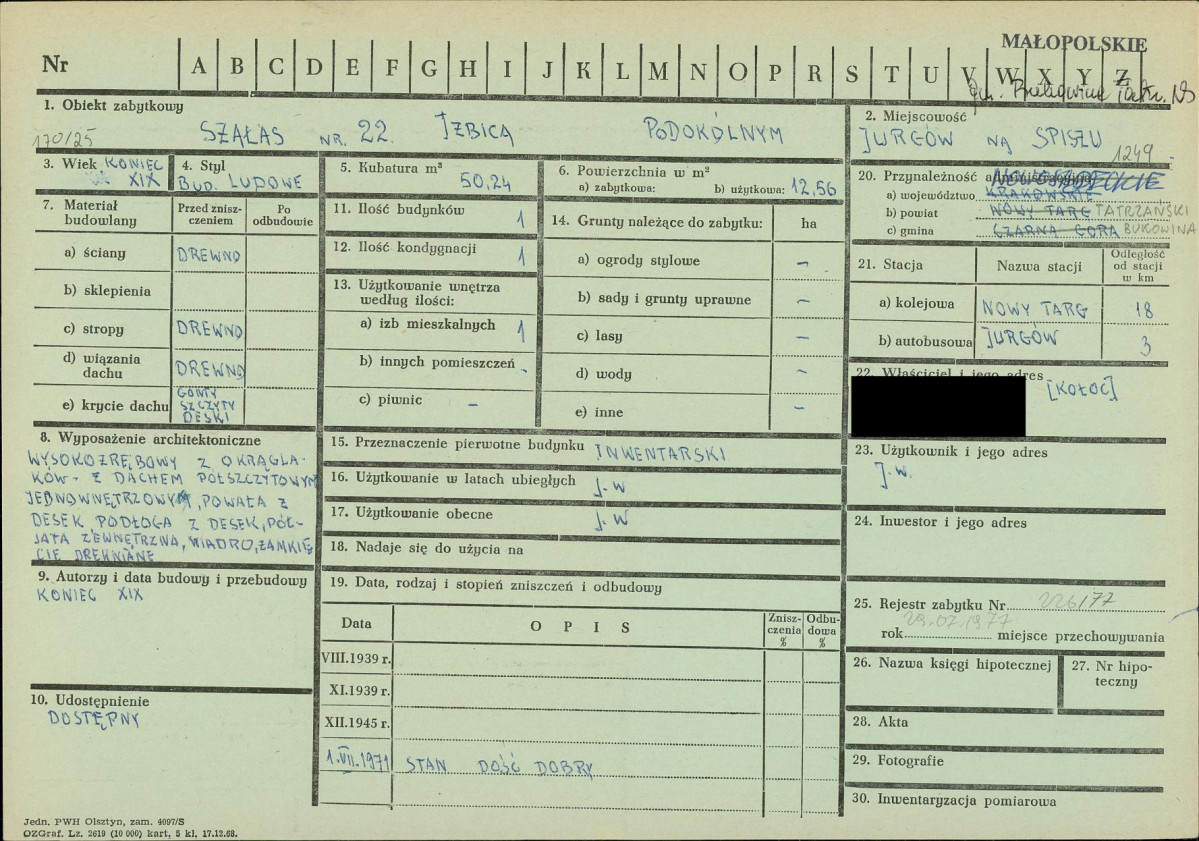 MAŁOPOLSKIE
Nr A B C D E F G H I J K L M N O P R S T U V W X Y Z
gm. Bukowina Tatrz. NS
1. Obiekt zabytkowy
170/25 SZAŁAS NR. 22. IZBICA PODOKÓLNYM
2. Miejscowość
JURGÓW NA SPISZU
1249
3. Wiek KONIEC XIX
4. Styl
BUD. LUDOWE
5. Kubatura m³ 50,24
6. Powierzchnia w m²
a) zabytkowa: b) użytkowa: 12,56
20. Przynależność administracyjna
NOWOSĄDECKIE
a) województwo KRAKOWSKIE
b) powiat NOWY TARG TATRZAŃSKI
c) gmina CZARNA GÓRA BUKOWINA
7. Materiał budowlany
Przed zniszczeniem
Po odbudowie
a) ściany DREWNO
b) sklepienia
c) stropy DREWNO
d) wiązania dachu DREWNO
e) krycie dachu GONTY SZCZYTY DESKI
11. Ilość budynków 1
12. Ilość kondygnacji 1
13. Użytkowanie wnętrza
według ilości:
a) izb mieszkalnych 1
b) innych pomieszczeń -
c) piwnic -
14. Grunty należące do zabytku: ha
a) ogrody stylowe -
b) sady i grunty uprawne -
c) lasy -
d) wody -
e) inne -
21. Stacja Nazwa stacji Odległość od stacji w km
a) kolejowa NOWY TARG 18
b) autobusowa JURGÓW 3
22. Właściciel i jego adres
[KOŁOC]
23. Użytkownik i jego adres
J.W.
24. Inwestor i jego adres
8. Wyposażenie architektoniczne
WYSOKOZRĘBOWY Z OKRĄGLA-
KÓW - Z DACHEM PÓŁSZCZYTOWYM
JEDNOWNĘTRZOWY, POWAŁA Z
DESEK, PODŁOGA Z DESEK, PÓŁ-
JATA ZEWNĘTRZNA, WIADRO, ZAMKIĘ
CIE DREWNIANE
15. Przeznaczenie pierwotne budynku INWENTARSKI
16. Użytkowanie w latach ubiegłych J.W
17. Użytkowanie obecne J.W
18. Nadaje się do użycia na
19. Data, rodzaj i stopień zniszczeń i odbudowy
Data OPIS Zniszczenia % Odbudowa %
VIII.1939 r.
XI.1939 r.
XII.1945 r.
1.VII.1971 STAN DOŚĆ DOBRY
9. Autorzy i data budowy i przebudowy
KONIEC XIX
10. Udostępnienie
DOSTĘPNY
25. Rejestr zabytku Nr 226/77
29.07.1977
rok miejsce przechowywania
26. Nazwa księgi hipotecznej
27. Nr hipoteczny
28. Akta
29. Fotografie
30. Inwentaryzacja pomiarowa
Jedn. PWH Olsztyn, zam. 4097/S
OZGraf. Lz. 2619 (10 000) kart. 5 kl. 17.12.68.